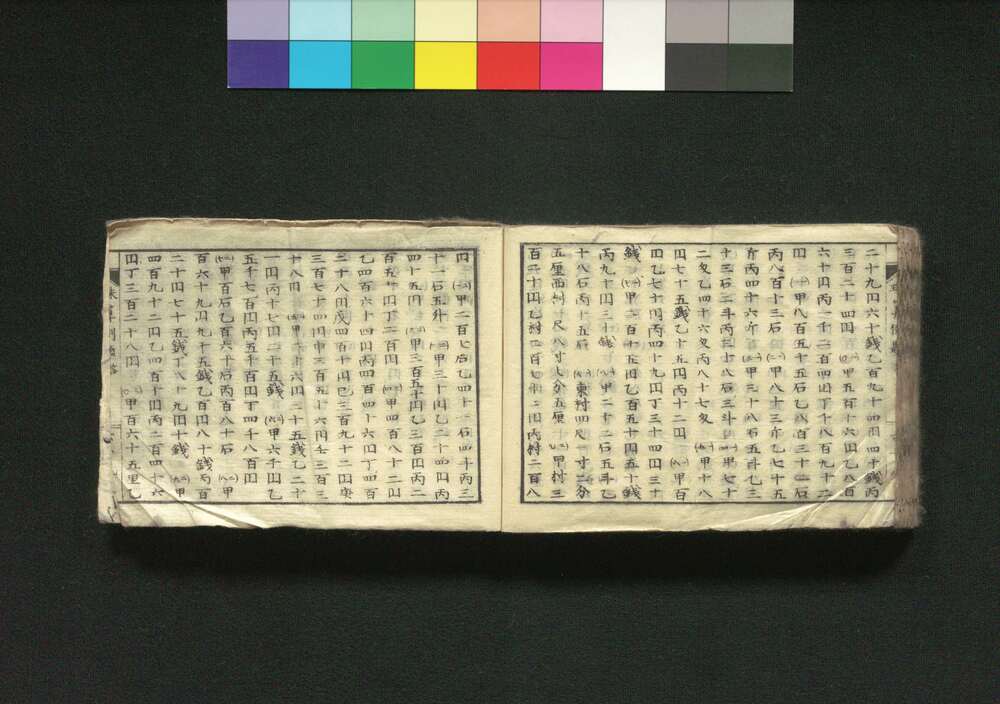 二十九円六十銭乙百九十四円四十銭丙
三百二十四円 甲五百十六円乙八百
六十円丙一千二百四円丁千八百九十二
円 甲八百五十五石乙八百三十二石
丙八百十三石 甲八十三斤乙七十五
斤丙四十六斤 甲三十八石五斗乙三
十三石二斗丙二十八石三斗 甲七十
二匁乙四十六匁丙八十七匁 甲十八
円七十五銭乙十五円丙十二円 甲百
円乙七十円丙四十九円丁三十四円三十
銭 甲二百十五円乙百五十四円五十銭
丙九十円三十銭 甲二十二石五斗乙
十八石丙十五石 東村四尺一寸二分
五厘西村 尺八寸七分五厘 甲村三
百二十円乙村二百七十二円丙村二百八
円 甲二百七石乙四十二石四斗丙三
十一石五斗 甲三十円乙二十四円丙
四十五円 甲三百五十円乙三百円丙二
百五十円丁二百円 甲四百八十二円
乙四百六十四円丙四百四十六円丁四百
二十八円戊四百十円巳三百九十二円庚
三百七十四円申三百五十六円壬三百三
十八円 甲二十六円二十五銭乙二十
一円丙十七円二十五銭 甲六千円乙
五千七百円丙五千百円丁四千八百円
甲百石乙百六十石丙百八十石 甲
百六十九円九十五銭乙百円八十銭丙百
二十四円七十五銭丁八十九円十銭 甲
四百九十二円乙四百十円丙二百四十六
円丁三百二十八円 甲百六十五里乙